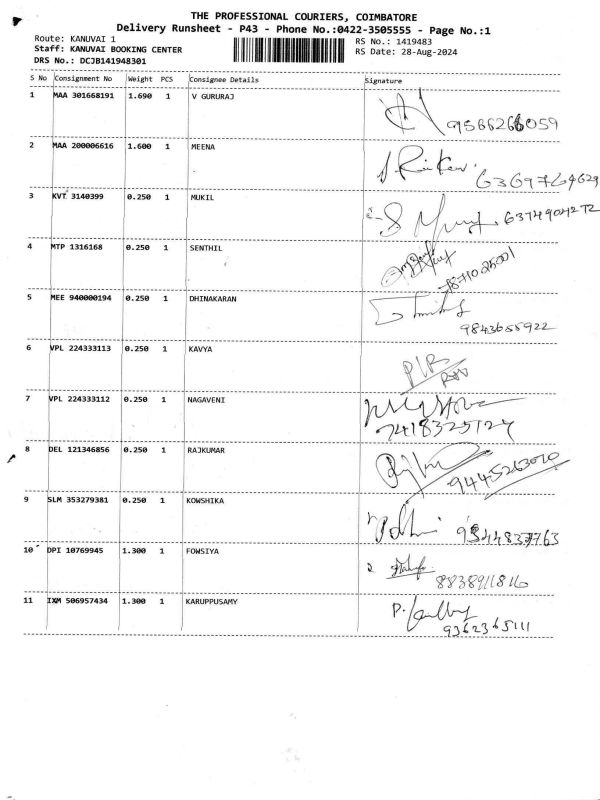 THE PROFESSIONAL COURIERS, COIMBATORE
Delivery Runsheet - P43 - Phone No.:0422-3505555 - Page No.:1
Route: KANUVAI 1
Staff: KANUVAI BOOKING CENTER
DRS No.: DCJB141948301
RS No.: 1419483
RS Date: 28-Aug-2024
S No Consignment No Weight PCS Consignee Details Signature
1 MAA 301668191 1.690 1 V GURURAJ
2 MAA 200006616 1.600 1 MEENA
3 KVT 3140399 0.250 1 MUKIL
4 MTP 1316168 0.250 1 SENTHIL
5 MEE 940000194 0.250 1 DHINAKARAN
9843655922
6 VPL 224333113 0.250 1 KAVYA
7 VPL 224333112 0.250 1 NAGAVENI
7418325127
8 DEL 121346856 0.250 1 RAJKUMAR
9 SLM 353279381 0.250 1 KOWSHIKA
10 DPI 10769945 1.300 1 FOWSIYA
11 IXM 506957434 1.300 1 KARUPPUSAMY
9362365111